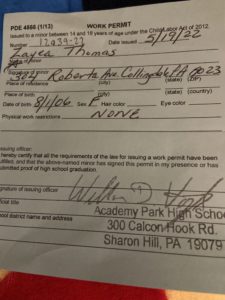 PDE 4866 (1/13) WORK PERMIT
Issued to a minor between 14 and 18 years of age under the Child Labor Act of 2012.
Number 12939-22 Date issued 5/19/22
Thomas
Name of minor
304 Roberta Ave Collingdale PA 19023
Place of residence (city) (state) (zip)
Place of birth (city) (state) (country)
Date of birth 8/1/06 Sex F Hair color Eye color
Physical work restrictions NONE
Issuing officer:
I hereby certify that all the requirements of the law for issuing a work permit have been
fulfilled, and that the above-named minor has signed this permit in my presence or has
submitted proof of high school graduation.
Signature of issuing officer
Official title
Academy Park High School
School district name and address
300 Calcon Hook Rd.
Sharon Hill, PA 19079